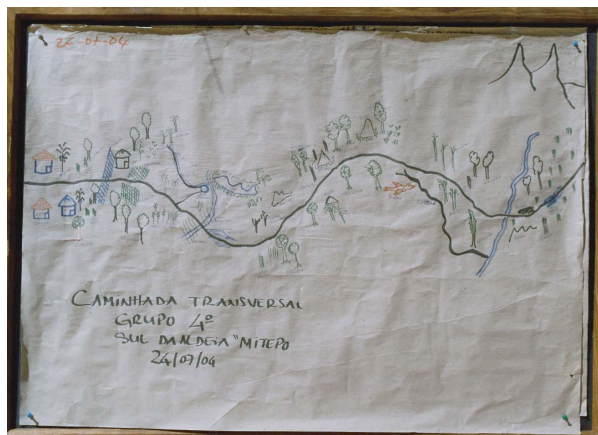 24-07-04
CAMINHADA TRANSVERSAL
GRUPO 4º
SUL DA ALDEIA "MITEPO
24/07/04